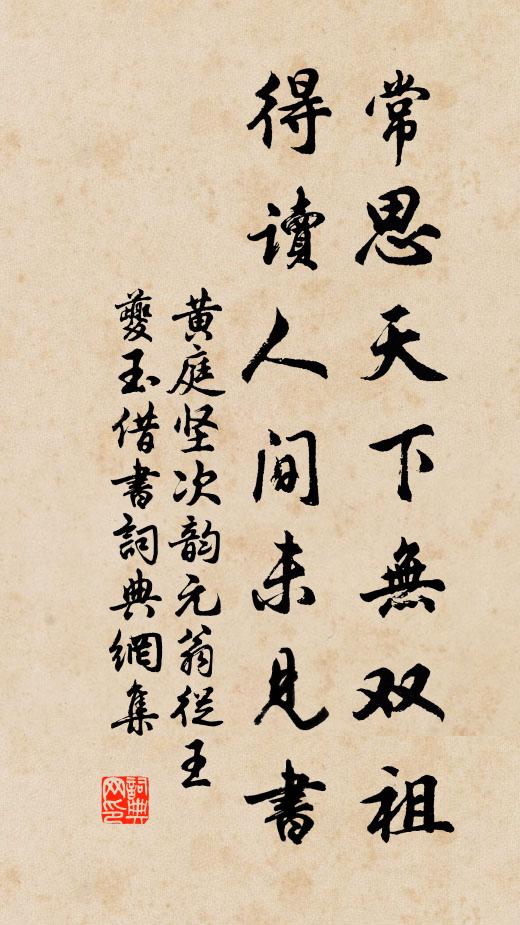 常思天下無双祖
得讀人间未見書
黄庭坚次韵元翁從王
夔玉借書詞典網集
詞典网印